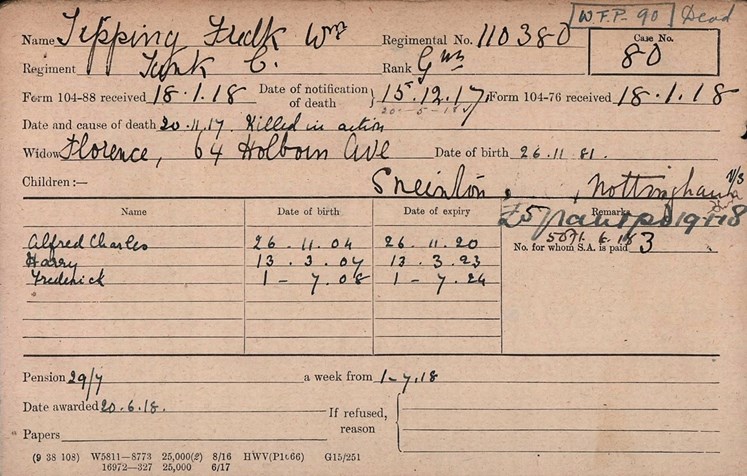 W.F.P. 90 Dead
Name Tipping Fredk Wm Regimental No. 110380 Case No. 80
Regiment Tank C. Rank Gnr
Form 104-88 received 18.1.18 Date of notification of death } 15.12.17 Form 104-76 received 18.1.18
Date and cause of death 20.11.17. Killed in action
Widow Florence, 64 Holborn Ave Date of birth 26.11.81.
Children :— Sneinton, Nottingham
Name Date of birth Date of expiry Remarks
£5
Alfred Charles 26.11.04 26.11.20
No. for whom S.A. is paid 3
Harry 13.3.07 13.3.23
Frederick 1-7.08 1-7.24
Pension 29/7 a week from 1-7.18
Date awarded 20.6.18. If refused, reason
Papers
(9 38 108) W5811—8773 25,000(2) 8/16 HWV(P1666) G15/251
16972—327 25,000 6/17